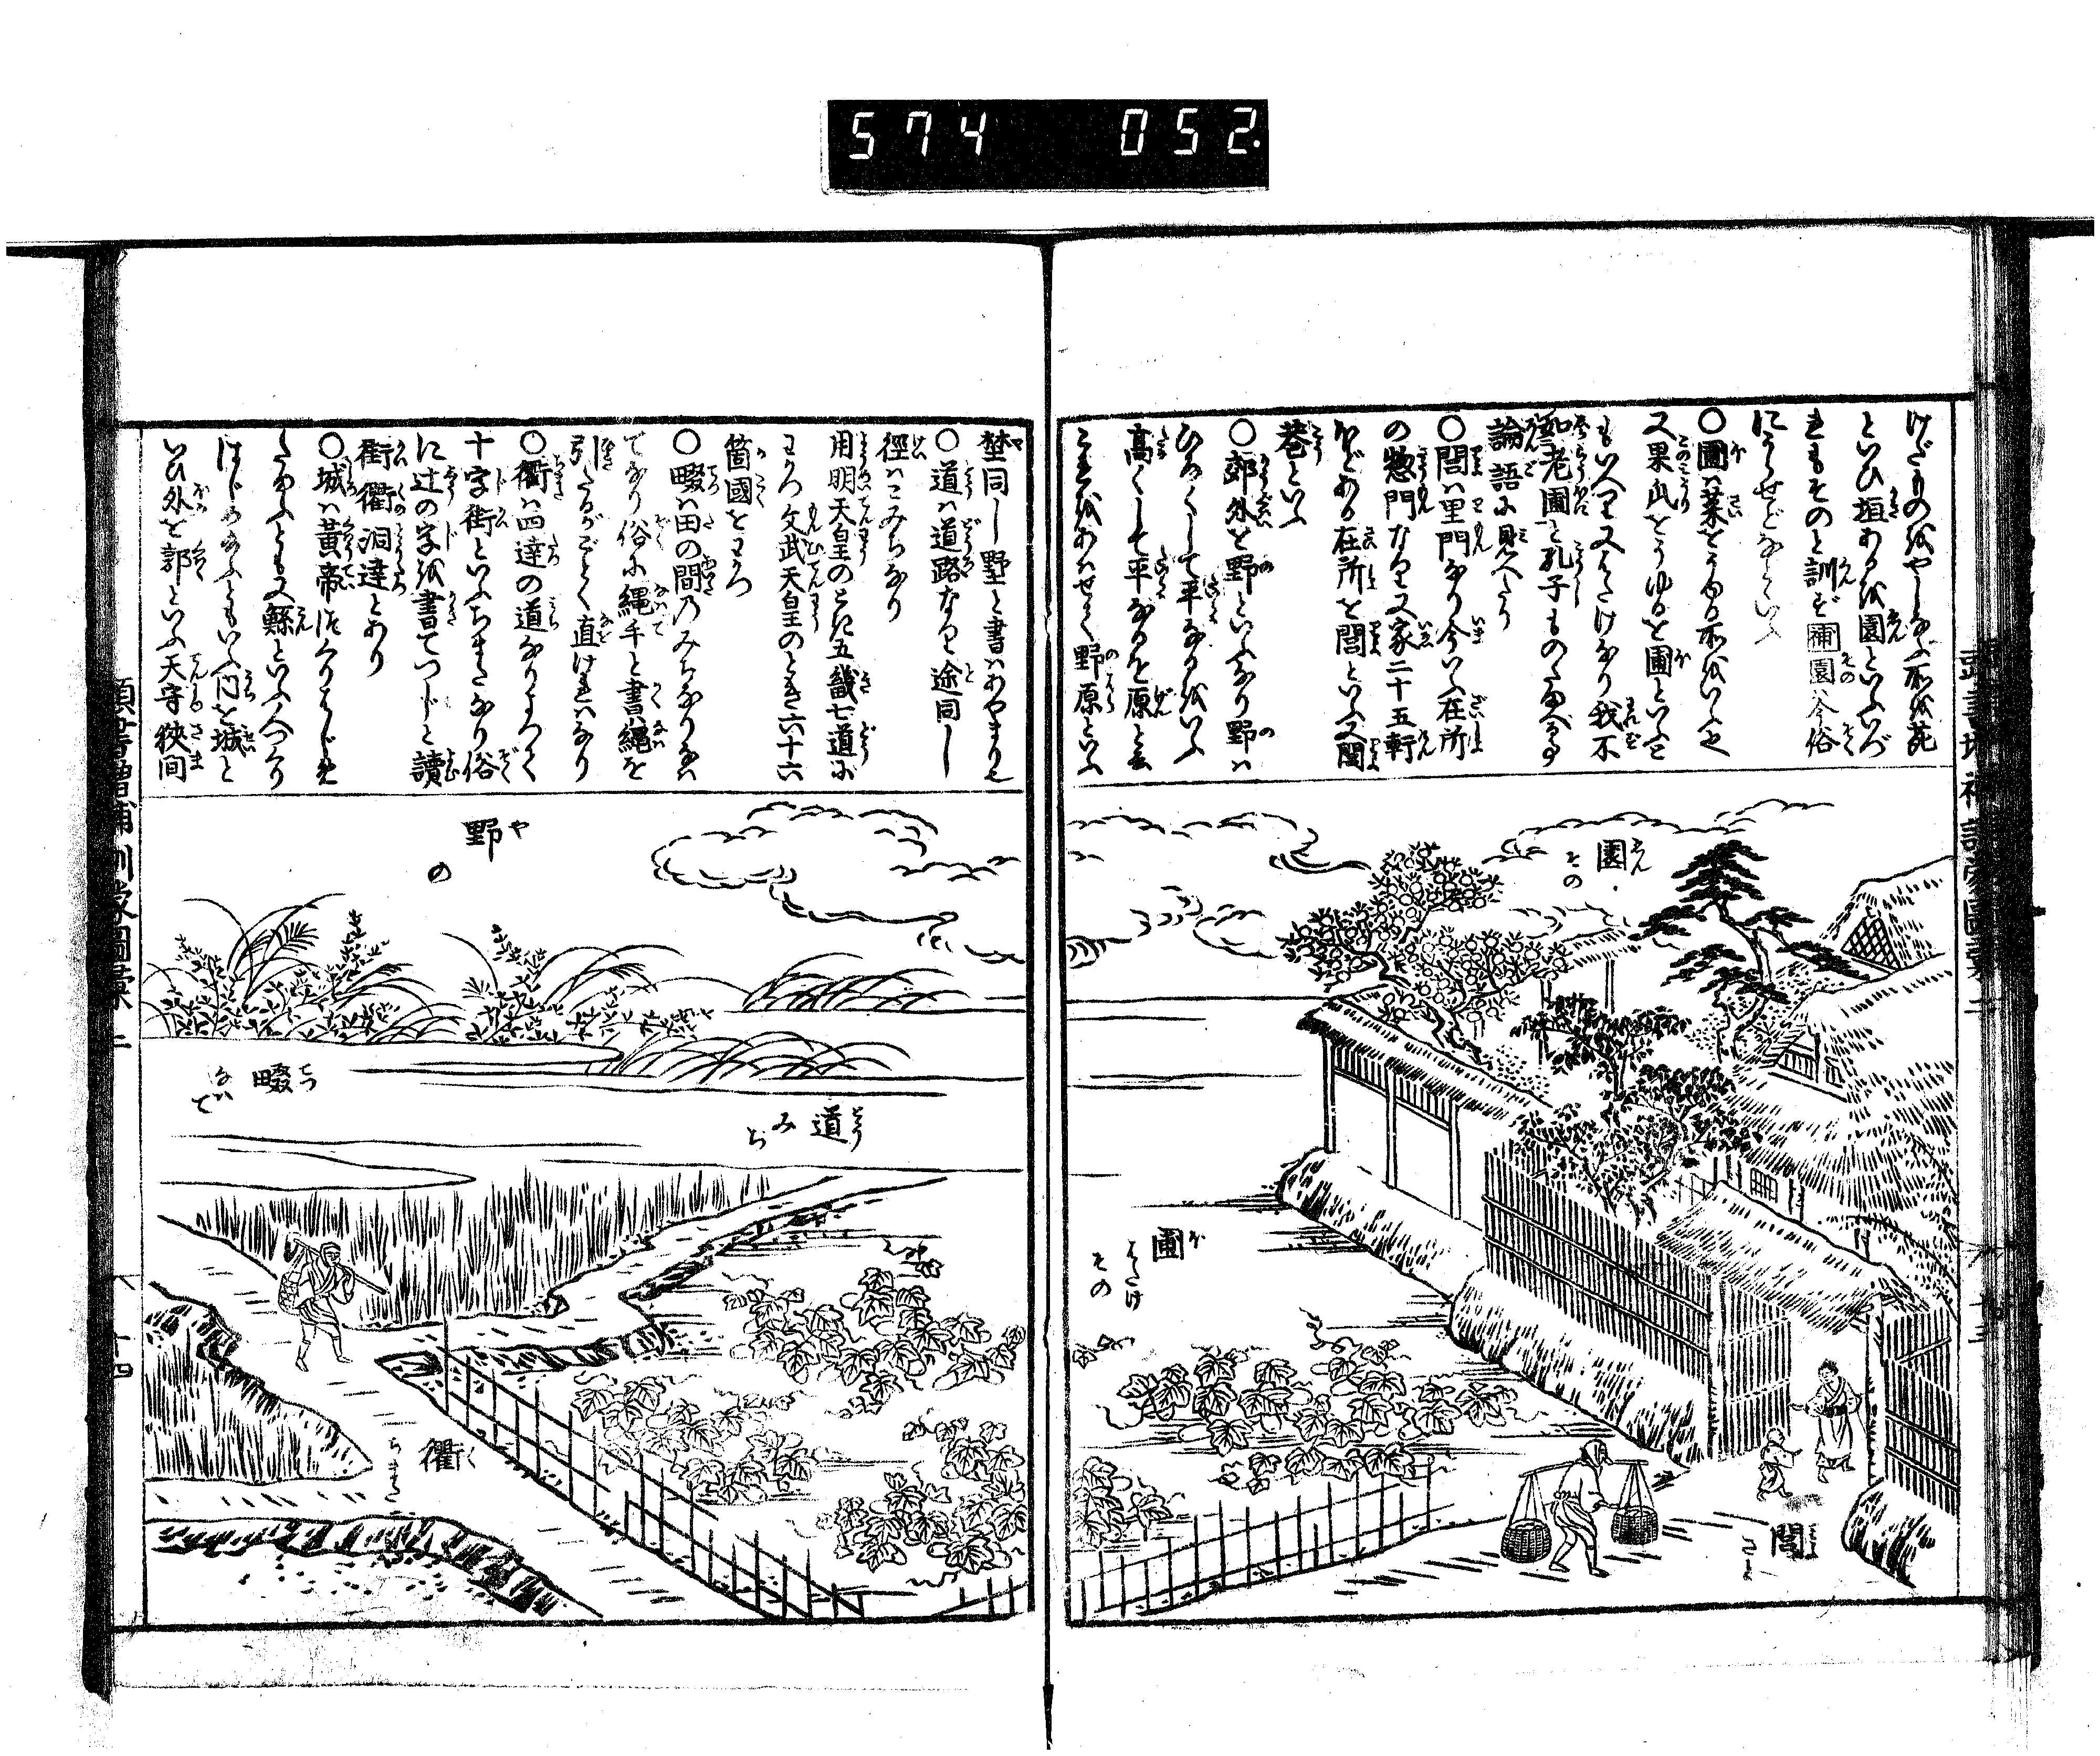 574 052.
けだものをやしなふ所を苑
といひ垣あるを園といふいづ
れもそのと訓ず補園今俗
にうらせどなどいふ
○圃は菜をううる所をいふ也
又果瓜をうゆるを圃といふと
もいへり又はたけなり我不
如老圃と孔子ものたまへる事
論語に見へたり
○閭は里門なり今いふ在所
の惣門なり又家二十五軒
ほどある在所を閭といふ又閭
巷といふ
○郊外を野といふなり野は
ひろくして平なるをいふ
高くして平なるを原と云
これをあはせて野原といふ
園 ゑん その
圃 ほ はたけ その
閭 りよ さと
埜同し野と書はあやまり也
○道は道路なり途同し
徑はこみちなり
用明天皇のとき五畿七道に
わかつ文武天皇のとき六十六
箇國をわかつ
○畷は田の間のみちなりなは
てなり俗に縄手と書縄を
引たるがごとく直ければなり
○衢は四達の道なりよつて
十字街といふちまたなり俗
に辻の字を書てつじと讀
衢洞達とあり
○城は黃帝つくりはじめ
たまふとも又鯀といふ人つくり
はじめ給ふともいへり内を城と
いひ外を郭といふ天守狹間
野 や の
畷 てつ なはて
道 どう みち
衢 く ちまた
頭書增補訓蒙圖彙 二 十四